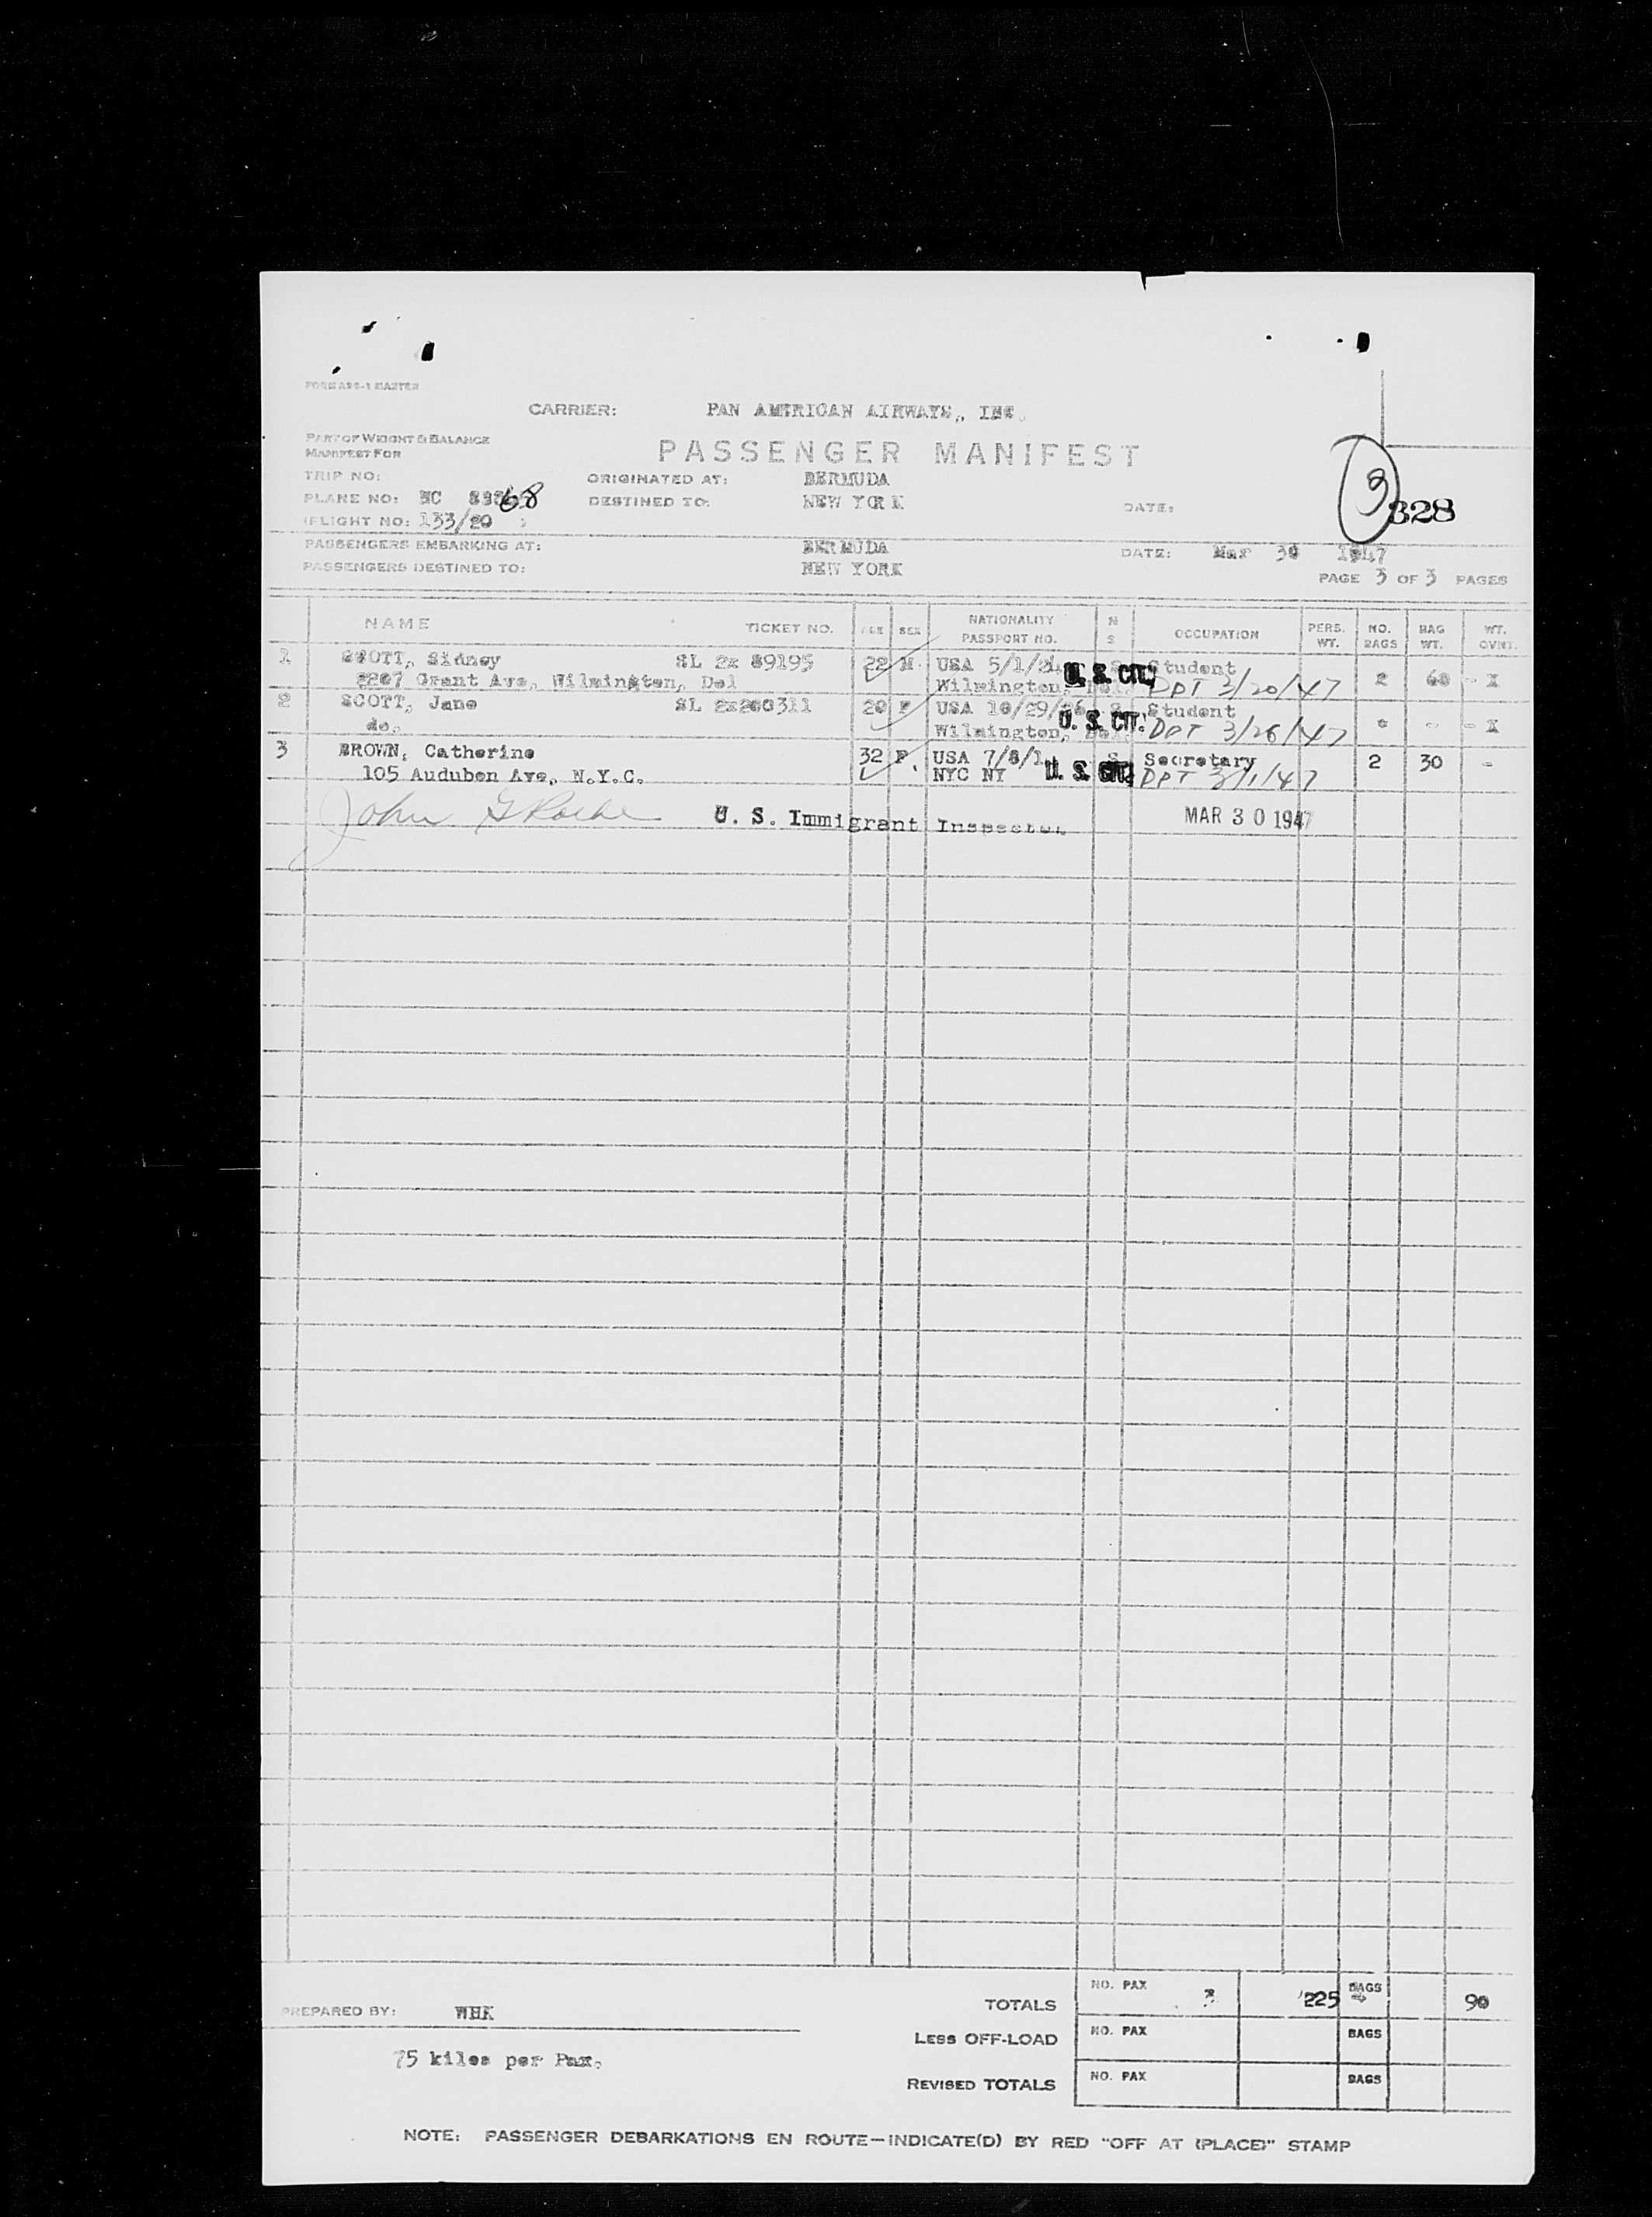 FORM APS-1 MASTER
CARRIER: PAN AMERICAN AIRWAYS, INC.
PART OF WEIGHT & BALANCE
MANIFEST FOR
PASSENGER MANIFEST
TRIP NO: ORIGINATED AT: BERMUDA
PLANE NO: NC 68 DESTINED TO: NEW YORK DATE:
3 328
FLIGHT NO: 133/20
PASSENGERS EMBARKING AT: BERMUDA DATE: Mar 30 1947
PASSENGERS DESTINED TO: NEW YORK
PAGE 3 OF 3 PAGES
NAME TICKET NO. AGE SEX NATIONALITY PASSPORT NO. N S OCCUPATION PERS. WT. NO. BAGS BAG WT. WT. OVNT.
1 SCOTT, Sidney SL 2x 89195 22 M USA 5/1/24 U. S. CIT. S Student 2 60 - X
2207 Grant Ave, Wilmington, Del Wilmington, Del. DPT 3/20/47
2 SCOTT, Jane SL 2x200311 20 F USA 10/29/26 S Student - - X
do. Wilmington, Del. U. S. CIT. DPT 3/26/47
3 BROWN, Catherine 32 F. USA 7/8/1 S Secretary 2 30 -
105 Audubon Ave, N.Y.C. NYC NY U. S. CIT. DPT 3/1/47
John G Roche U. S. Immigrant Inspector MAR 30 1947
TOTALS NO. PAX 3 225 BAGS 4 90
PREPARED BY: WHK
LESS OFF-LOAD NO. PAX BAGS
75 kilos per Pax.
REVISED TOTALS NO. PAX BAGS
NOTE: PASSENGER DEBARKATIONS EN ROUTE—INDICATE(D) BY RED "OFF AT (PLACE)" STAMP